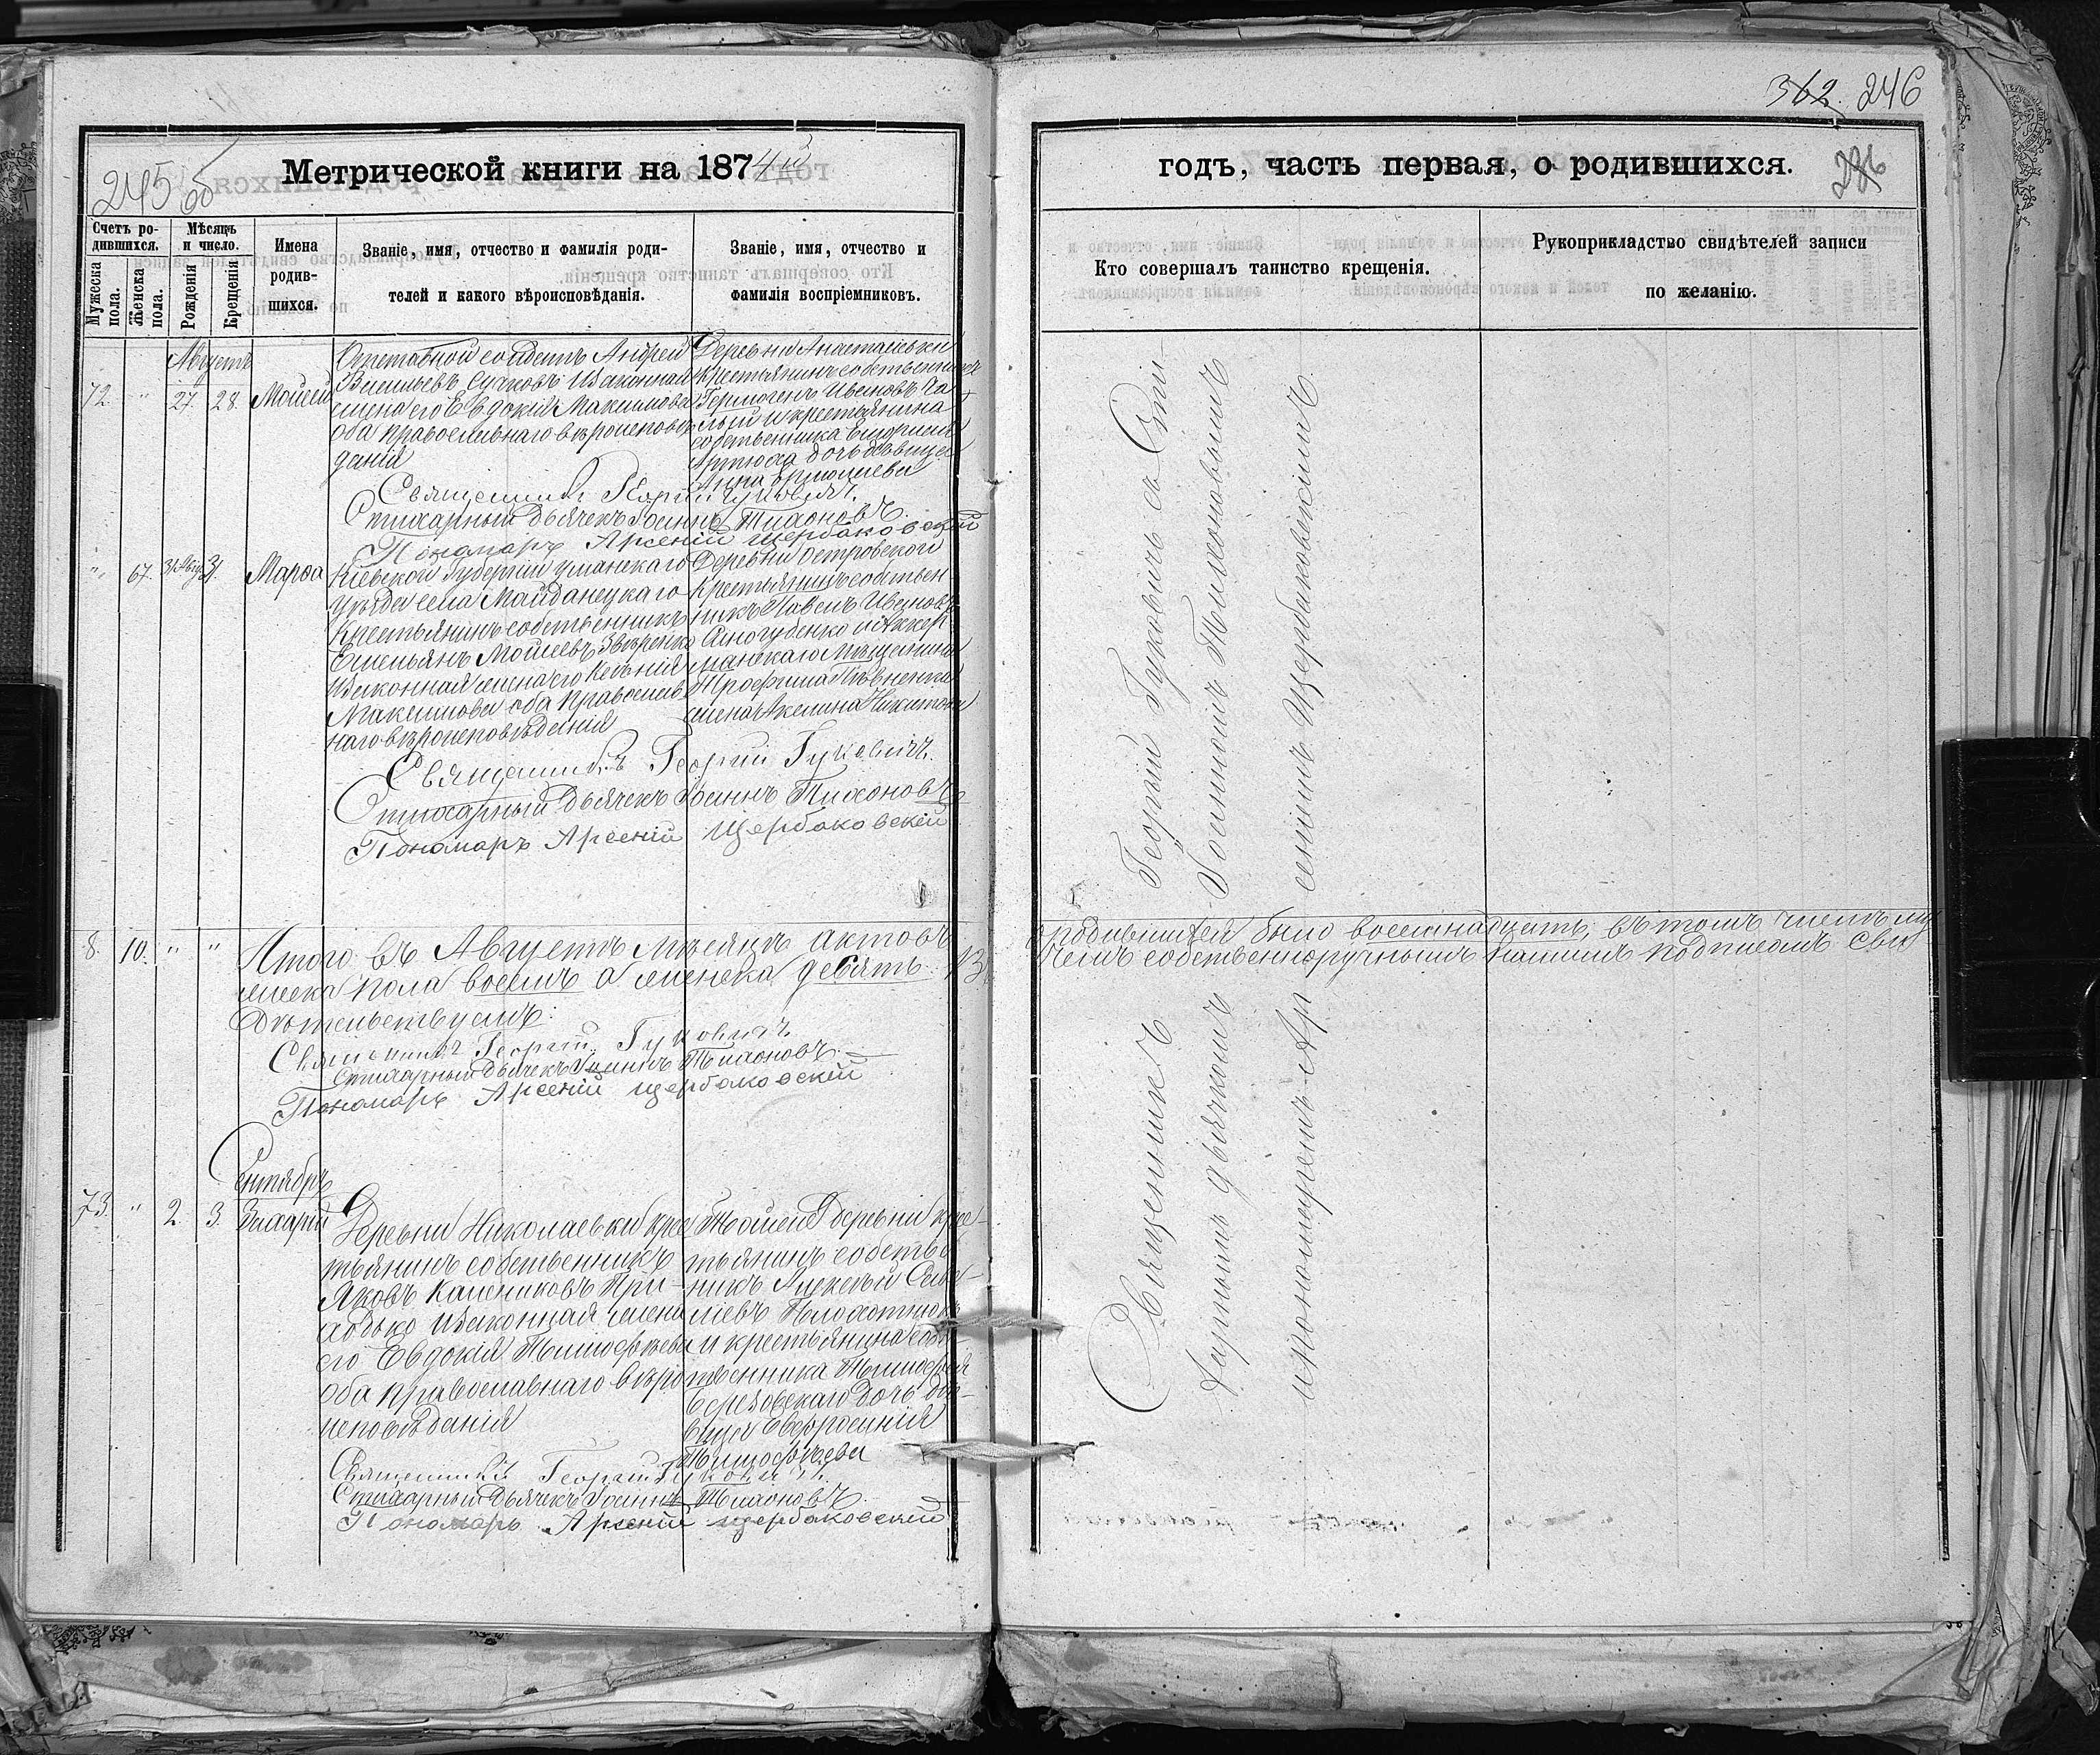 245 об
Метрической книги на 1874й
Счетъ ро-
дившихся.
Мужеска
пола.
Женска
пола.
Мѣсяцъ
и число.
Рожденія
Крещенія
Имена
родив-
шихся.
Званіе, имя, отчество и фамилія роди-
телей и какого вѣроисповѣданія.
Званіе, имя, отчество и
фамилія воспріемниковъ.
Августъ
72. " 27. 28. Моисей
Отставной солдатъ Андрей
Васильевъ Сучковъ и законная
жена его Евдокія Максимова
оба православнаго вѣроисповѣ
данія
Деревни Анастасьевки
крестьянинъ собственникъ
Гермогенъ Ивановъ
и крестьянина
собственника
дочь дѣвица
Анна
Священникъ Георгій Гуковичъ.
Стихарный Дьячекъ Іоаннъ Тихоновъ.
Пономарь Арсеній Щербаковскій
" 67. 31 Авгу. 31. Марѳа
Кіевской Губерніи Уманскаго
Уѣзда села Майданецкаго
Крестьянинъ собственникъ
Емельянъ Моисеевъ Звѣренко
и законная жена его Ксенія
Максимова оба православ
наго вѣроисповѣданія
Деревни Островской
крестьянинъ собствен
никъ Павелъ Ивановъ
и Аккер
манскаго мѣщанина
Трофима
жена Акелина Никитова
Священникъ Георгій Гуковичъ.
Стихарный Дьячекъ Іоаннъ Тихоновъ
Пономарь Арсеній Щербаковскій
8. 10. " " Итого въ Августѣ мѣсяцѣ актовъ
жеска пола восемь а женска десять
дѣтельствуемъ:
Священникъ Георгій Гуковичъ
Стихарный Дьячекъ Іоаннъ Тихоновъ.
Пономарь Арсеній Щербаковскій
Сентябрь
73. " 2. 3. Захарій
Деревни Николаевки крес
тьянинъ собственникъ
Яковъ При-
ходько и законная жена
его Евдокія Тимофѣева
оба православнаго вѣро
исповѣданія
Тойже деревни крес-
тьянинъ собстве
никъ Алексѣй
и крестьянина соб
ственника Тимофея
Березовскаго дочь дѣ-
вица Евфросинія
Тимофѣева
Священникъ Георгій Гуковичъ.
Стихарный Дьячекъ Іоаннъ Тихоновъ.
Пономарь Арсеній Щербаковскій
362. 246
годъ, часть первая, о родившихся.
Кто совершалъ таинство крещенія.
Рукоприкладство свидѣтелей записи
по желанію.
Священникъ Георгій Гуковичъ съ Сти-
харнымъ дьячкомъ Іоанномъ Тихоновымъ
и пономаремъ Ар сеніемъ Щербаковскимъ.
о родившихся было восемнадцать, въ томъ числѣ му
чемъ собственноручнымъ нашимъ подписомъ сви